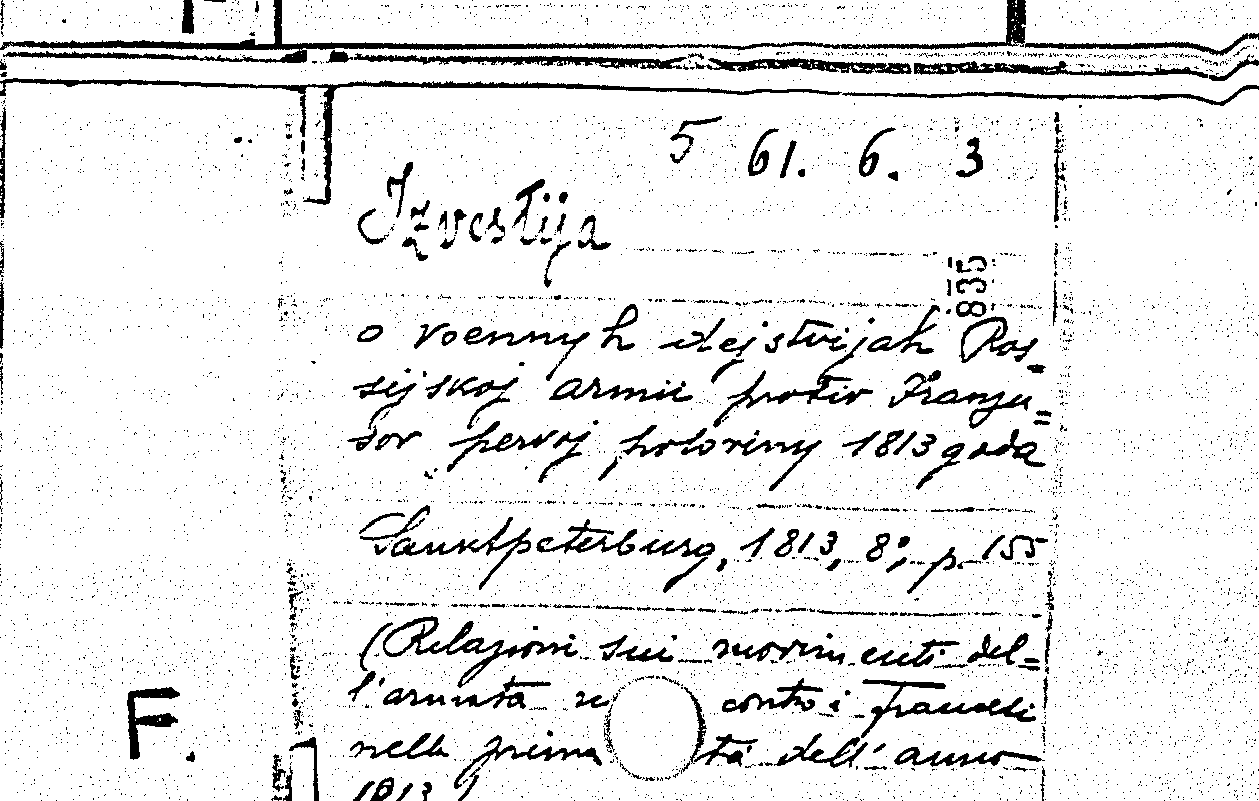 5 61. 6. 3
Izvestija
835
o voennyh dejstvijah Ros=
sijskoj armii protiv Franzu=
sov pervoj poloviny 1813 goda
Sanktpeterburg, 1813, 8°, p. 155
(Relazioni sui movimenti del=
l'armata contro i francesi
nella prima tà dell'anno
1813)
F.